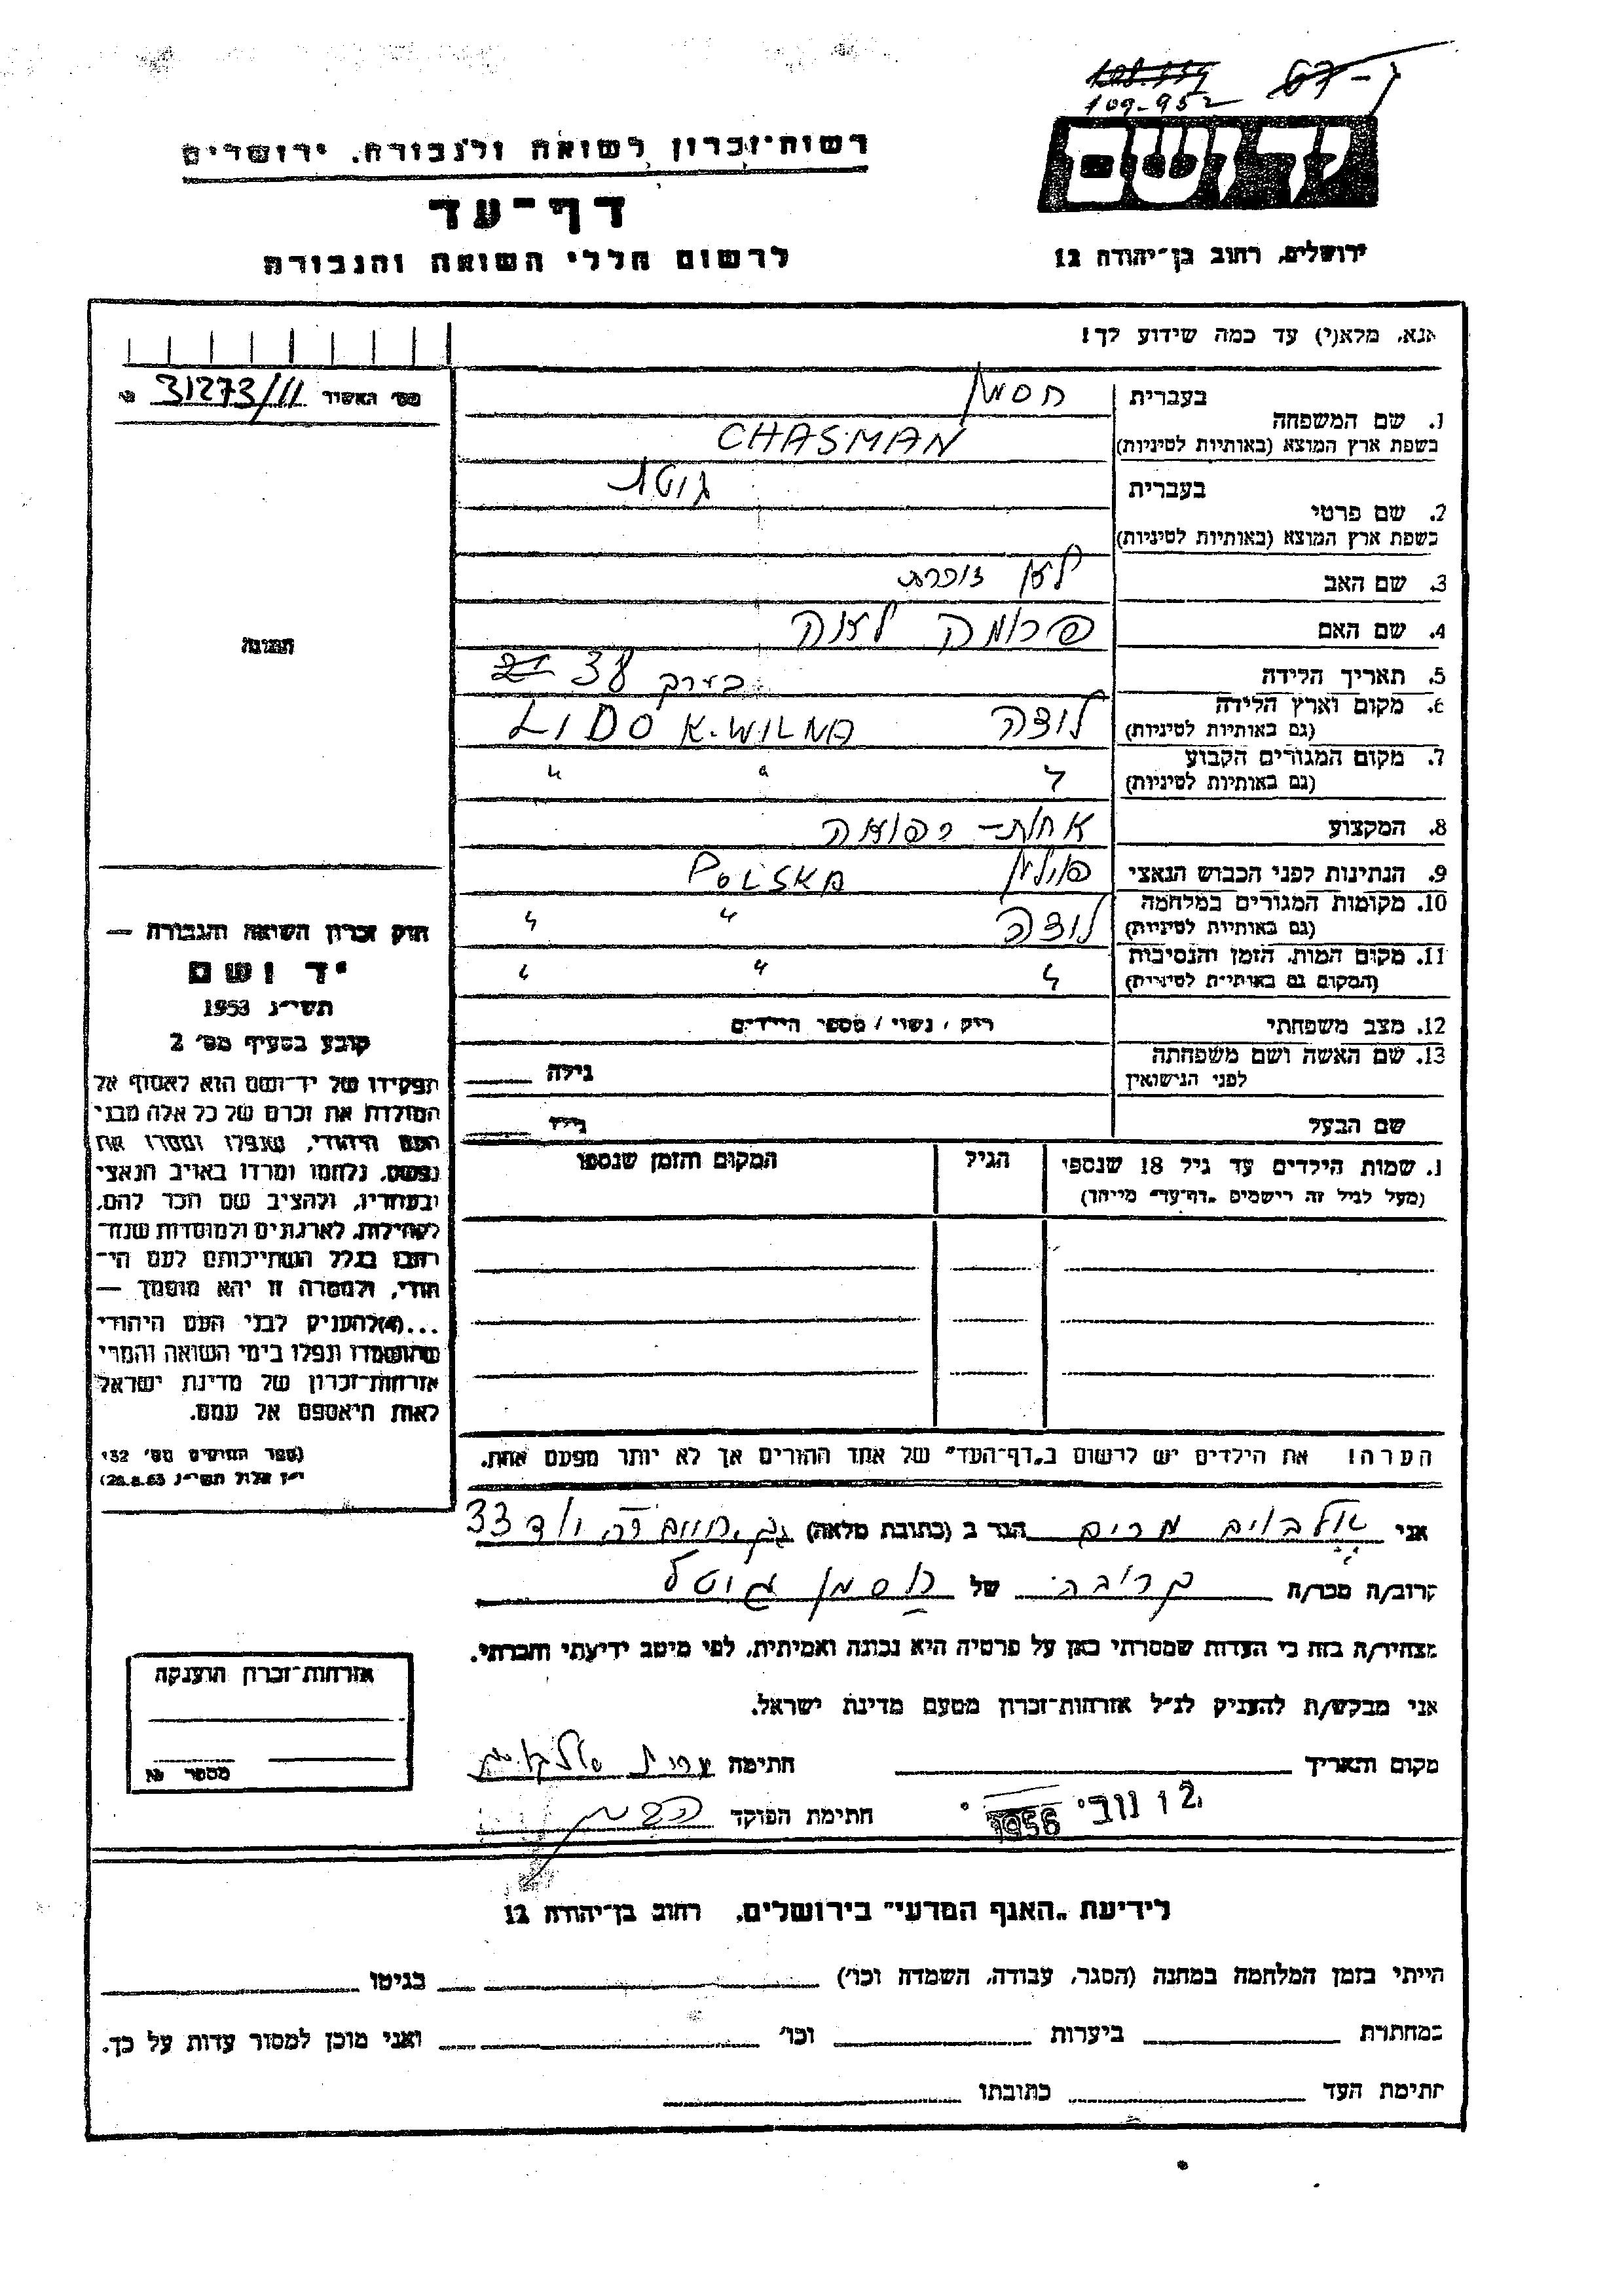 109-952
רשות-זכרון לשואה ולגבורה, ירושלים
דף-עד
לרשום חללי השואה והגבורה
יד ושם
ירושלים, רחוב בן-יהודה 12
אנא, מלא(י) עד כמה שידוע לך!
מס' האשור 31273/11
1. שם המשפחה
בעברית חסמן
בשפת ארץ המוצא (באותיות לטיניות) CHASMAN
2. שם פרטי
בעברית גוטל
בשפת ארץ המוצא (באותיות לטיניות)
3. שם האב לא זוכרת
4. שם האם פרומה לאה
5. תאריך הלידה בערך 38
6. מקום וארץ הלידה (גם באותיות לטיניות) לודה LIDO K. WILNA
7. מקום המגורים הקבוע (גם באותיות לטיניות) " " "
8. המקצוע אחות-רפואה
9. הנתינות לפני הכבוש הנאצי פולין POLSKA
10. מקומות המגורים במלחמה (גם באותיות לטיניות) לודה " "
11. מקום המות, הזמן והנסיבות (המקום גם באותיות לטיניות) " " "
12. מצב משפחתי רוק / נשוי / מספר הילדים
13. שם האשה ושם משפחתה לפני הנישואין גילה
שם הבעל גילו
תמונה
חוק זכרון השואה והגבורה —
יד ושם
תשי"ג 1953
קובע בסעיף מס' 2
תפקידו של יד-ושם הוא לאסוף אל
המולדת את זכרם של כל אלה מבני
העם היהודי, שנפלו ומסרו את
נפשם, נלחמו ומרדו באויב הנאצי
ובעוזריו, ולהציב שם וזכר להם,
לקהילות, לארגונים ולמוסדות שנח-
רבו בגלל השתייכותם לעם הי-
הודי, ולמטרה זו יהא מוסמך —
...(4) להעניק לבני העם היהודי
שהושמדו ונפלו בימי השואה והמרי
אזרחות-זכרון של מדינת ישראל
לאות היאספם אל עמם.
(ספר החוקים מס' 132
י"ז אלול תשי"ג 28.8.53)
1. שמות הילדים עד גיל 18 שנספו הגיל המקום והזמן שנספו
(מעל לגיל זה רישמים "דף-עד" מיוחד)
הערה! את הילדים יש לרשום ב"דף-העד" של אחד ההורים אך לא יותר מפעם אחת.
אני מרים הגר ב (כתובת מלאה) 33
קרוב/ה מכר/ה קרובה של חסמן גוטל
מצהיר/ה בזה כי העדות שמסרתי כאן על פרטיה היא נכונה ואמיתית, לפי מיטב ידיעתי והכרתי.
אני מבקש/ת להעניק לנ"ל אזרחות-זכרון מטעם מדינת ישראל.
מקום ותאריך חתימה
12 נוב' 1956 חתימת הפוקד
אזרחות-זכרון הוענקה
מספר №
לידיעת "האגף המדעי" בירושלים, רחוב בן-יהודה 12
הייתי בזמן המלחמה במחנה (הסגר, עבודה, השמדה וכו') בגיטו
במחתרת ביערות וכו' ואני מוכן למסור עדות על כך.
חתימת העד כתובתו